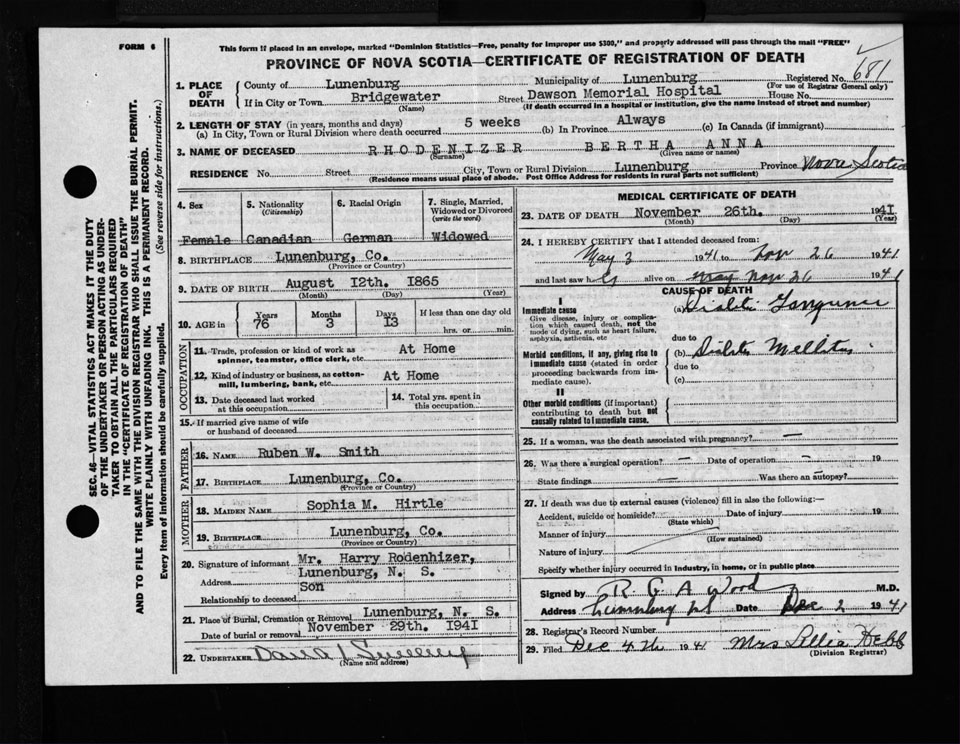 FORM 6
This form if placed in an envelope, marked "Dominion Statistics—Free, penalty for improper use $300," and properly addressed will pass through the mail "FREE"
PROVINCE OF NOVA SCOTIA—CERTIFICATE OF REGISTRATION OF DEATH
681
SEC. 46—VITAL STATISTICS ACT MAKES IT THE DUTY
OF THE UNDERTAKER OR PERSON ACTING AS UNDER-
TAKER TO OBTAIN ALL THE PARTICULARS REQUIRED
IN THE "CERTIFICATE OF REGISTRATION OF DEATH"
AND TO FILE THE SAME WITH THE DIVISION REGISTRAR WHO SHALL ISSUE THE BURIAL PERMIT.
WRITE PLAINLY WITH UNFADING INK. THIS IS A PERMANENT RECORD.
Every item of information should be carefully supplied. (See reverse side for instructions.)
1. PLACE OF DEATH
County of Lunenburg Municipality of Lunenburg Registered No.
(For use of Registrar General only)
If in City or Town Bridgewater Street Dawson Memorial Hospital House No.
(Name) (If death occurred in a hospital or institution, give the name instead of street and number)
2. LENGTH OF STAY (in years, months and days)
(a) In City, Town or Rural Division where death occurred 5 weeks (b) In Province Always (c) In Canada (if immigrant)
3. NAME OF DECEASED RHODENIZER BERTHA ANNA
(Surname) (Given name or names)
RESIDENCE No. Street City, Town or Rural Division Lunenburg Province Nova Scotia
(Residence means usual place of abode. Post Office Address for residents in rural parts not sufficient)
4. Sex
Female
5. Nationality
(Citizenship)
Canadian
6. Racial Origin
German
7. Single, Married,
Widowed or Divorced
(write the word)
Widowed
8. BIRTHPLACE Lunenburg, Co.
(Province or Country)
9. DATE OF BIRTH August 12th. 1865
(Month) (Day) (Year)
10. AGE in
Years Months Days If less than one day old
76 3 13 hrs. or min.
OCCUPATION
11. Trade, profession or kind of work as
spinner, teamster, office clerk, etc. At Home
12. Kind of industry or business, as cotton-
mill, lumbering, bank, etc. At Home
13. Date deceased last worked
at this occupation
14. Total yrs. spent in
this occupation
15. If married give name of wife
or husband of deceased
FATHER
16. NAME Ruben W. Smith
17. BIRTHPLACE Lunenburg, Co.
(Province or Country)
MOTHER
18. MAIDEN NAME Sophia M. Hirtle
19. BIRTHPLACE Lunenburg, Co.
(Province or Country)
20. Signature of informant Mr. Harry Rodenhizer,
Address Lunenburg, N. S.
Relationship to deceased Son
21. Place of Burial, Cremation or Removal Lunenburg, N. S.
Date of burial or removal November 29th. 1941
22. UNDERTAKER
(Name and address)
MEDICAL CERTIFICATE OF DEATH
23. DATE OF DEATH November 26th. 1941
(Month) (Day) (Year)
24. I HEREBY CERTIFY that I attended deceased from:
May 3 1941 to Nov 26 1941
and last saw her alive on Nov 26 1941
CAUSE OF DEATH
I
Immediate cause
Give disease, injury or complica-
tion which caused death, not the
mode of dying, such as heart failure,
asphyxia, asthenia, etc
(a)
due to
Morbid conditions, if any, giving rise to
immediate cause (stated in order
proceeding backwards from im-
mediate cause).
(b)
due to
(c)
II
Other morbid conditions (if important)
contributing to death but not
causally related to immediate cause.
25. If a woman, was the death associated with pregnancy? —
26. Was there a surgical operation? — Date of operation — 19
State findings — Was there an autopsy?
27. If death was due to external causes (violence) fill in also the following:—
Accident, suicide or homicide? Date of injury 19
(State which)
Manner of injury
(How sustained)
Nature of injury
Specify whether injury occurred in industry, in home, or in public place
Signed by R. G. A Wood M.D.
Address Lunenburg NS Date Dec 2 1941
28. Registrar's Record Number
29. Filed Dec 4th 1941 Mrs Lillie Hebb
(Division Registrar)